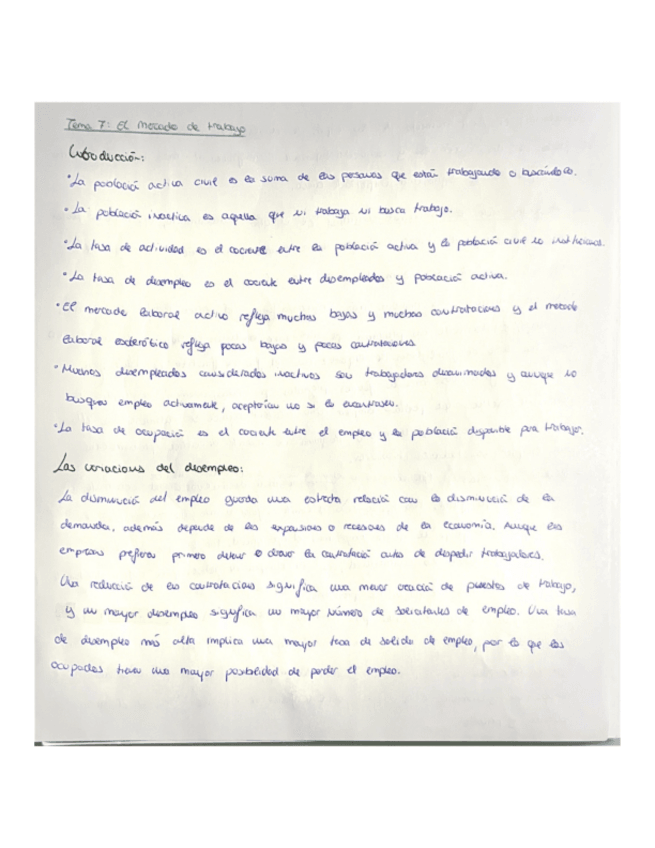 Tema 7: El mercado de trabajo
Introducción:
• La población activa civil es la suma de las personas que están trabajando o buscándolo.
• La población inactiva es aquella que ni trabaja ni busca trabajo.
• La tasa de actividad es el cociente entre la población activa y la población civil no institucional.
• La tasa de desempleo es el cociente entre desempleados y población activa.
• El mercado laboral activo refleja muchas bajas y muchas contrataciones y el mercado
laboral esclerótico refleja pocas bajas y pocas contrataciones.
• Muchos desempleados considerados inactivos son trabajadores desanimados y aunque no
busquen empleo activamente, aceptarían uno si lo encontrasen.
• La tasa de ocupación es el cociente entre el empleo y la población disponible para trabajar.
Las variaciones del desempleo:
La disminución del empleo guarda una estrecha relación con la disminución de la
demanda, además depende de las expansiones o recesiones de la economía. Aunque las
empresas prefieren primero detener o la contratación antes de despedir trabajadores.
Una reducción de las contrataciones significa una menor creación de puestos de trabajo,
y un mayor desempleo significa un mayor número de solicitantes de empleo. Una tasa
de desempleo más alta implica una mayor tasa de salida de empleo, por lo que los
ocupados tienen una mayor posibilidad de perder el empleo.